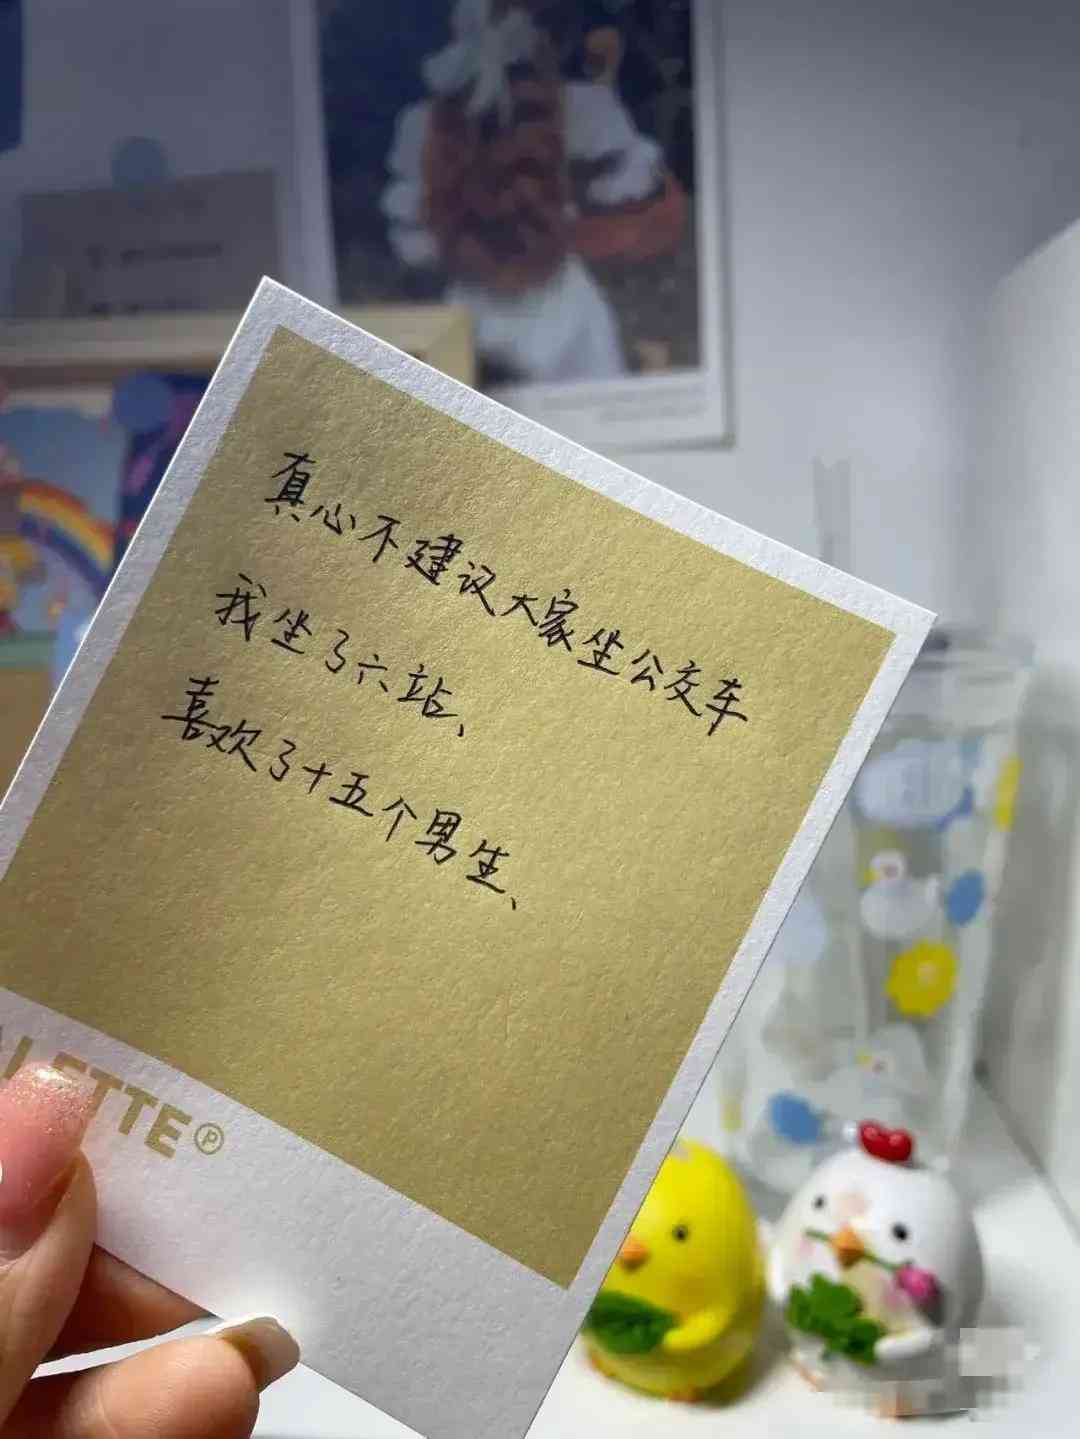 真心不建议大家坐公交车
我坐了六站、
喜欢了十五个男生、
ALETTE Ⓟ